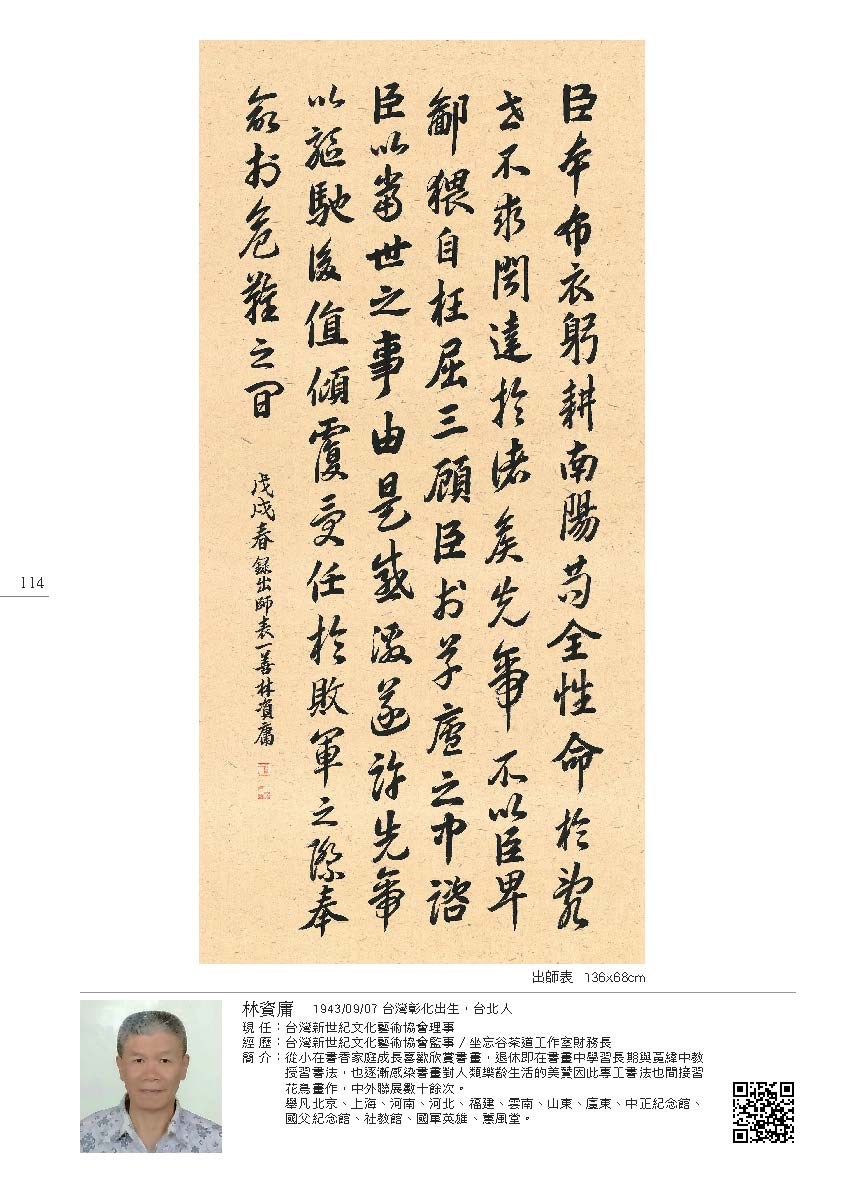 臣本布衣躬耕南陽苟全性命於亂
世不求聞達於諸侯先帝不以臣卑
鄙猥自枉屈三顧臣於草廬之中諮
臣以當世之事由是感激遂許先帝
以驅馳後值傾覆受任於敗軍之際奉
命於危難之間
戊戌春錄出師表一善林資庸
114
出師表 136x68cm
林資庸 1943/09/07 台灣彰化出生，台北人
現 任：台灣新世紀文化藝術協會理事
經 歷：台灣新世紀文化藝術協會監事 / 坐忘谷茶道工作室財務長
簡 介：從小在書香家庭成長喜歡欣賞書畫，退休即在書畫中學習長期與黃緯中教
授習書法，也逐漸感染書畫對人類樂齡生活的美贊因此專工書法也間接習
花鳥畫作，中外聯展數十餘次。
舉凡北京、上海、河南、河北、福建、雲南、山東、廣東、中正紀念館、
國父紀念館、社教館、國軍英雄、蕙風堂。